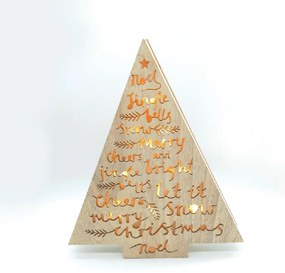 Noel
Jingle
bells
snow
Merry
cheers and
jingle bright
bells let it
cheers snow
merry
christmas
noel